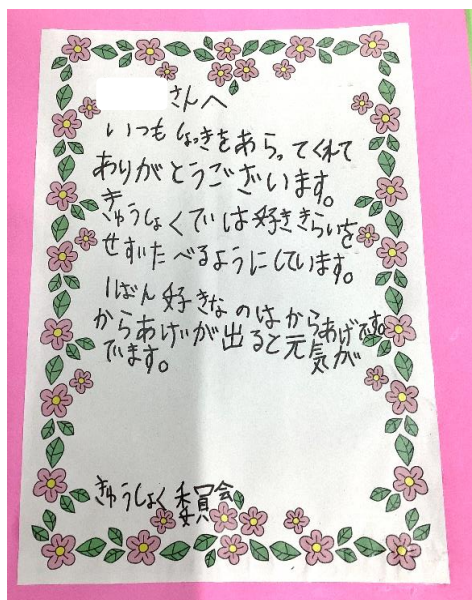 さんへ
いつもしょっきをあらってくれて
ありがとうございます。
きゅうしょくでは好ききらいを
せずたべるようにしています。
1ばん好きなのはからあげです。
からあげが出ると元気が
でます。
きゅうしょく委員会